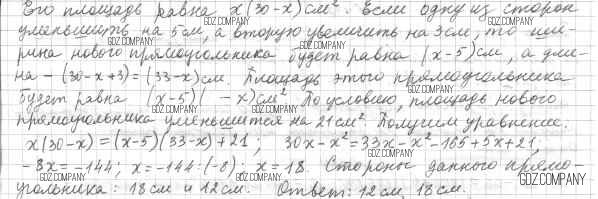 Его площадь равна x(30-x) см². Если одну из сторон
уменьшить на 5 см, а вторую увеличить на 3 см, то ши-
рина нового прямоугольника будет равна (x-5) см, а дли-
на - (30-x+3)=(33-x) см. Площадь этого прямоугольника
будет равна (x-5)( -x) см². По условию, площадь нового
прямоугольника уменьшится на 21 см². Получим уравнение.
x(30-x)=(x-5)(33-x)+21; 30x-x²=33x-x²-165+5x+21,
-8x=-144; x=-144:(-8); x=18. Стороны данного прямо-
угольника: 18 см и 12 см. Ответ: 12 см, 18 см.
GDZ.COMPANY
GDZ.COMPANY
GDZ.COMPANY
GDZ.COMPANY
GDZ.COMPANY
GDZ.COMPANY
GDZ.COMPANY
GDZ.COMPANY
GDZ.COMPANY
GDZ.COMPANY
GDZ.COMPANY